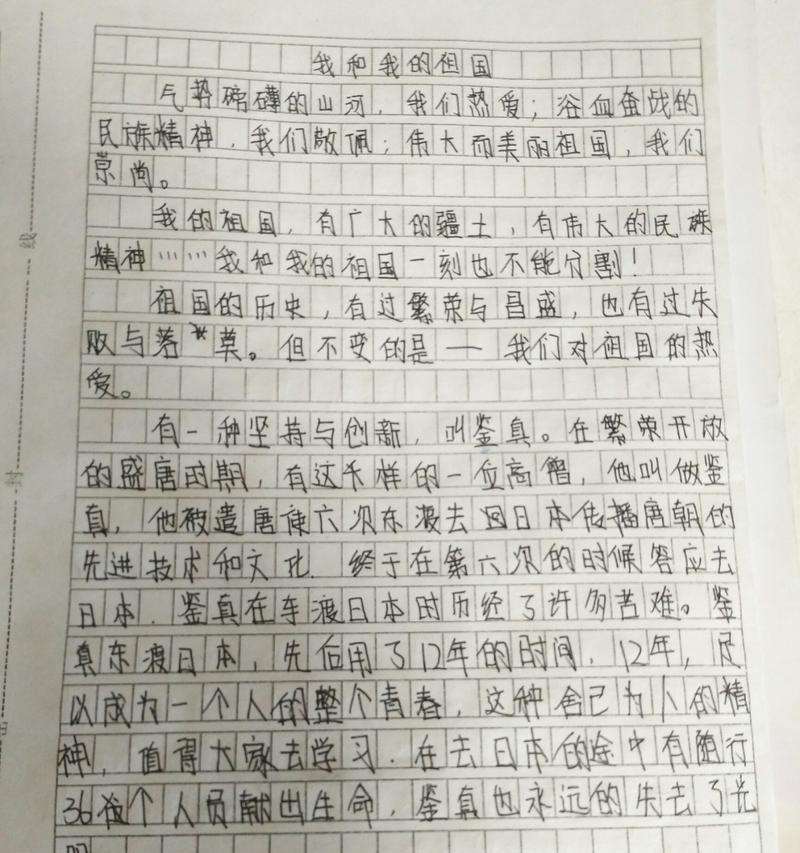 我和我的祖国
气势磅礴的山河，我们热爱；浴血奋战的
民族精神，我们敬佩；伟大而美丽祖国，我们
崇尚。
我的祖国，有广大的疆土，有伟大的民族
精神……我和我的祖国一刻也不能分割！
祖国的历史，有过繁荣与昌盛，也有过失
败与落莫。但不变的是——我们对祖国的热
爱。
有一种坚持与创新，叫鉴真。在繁荣开放
的盛唐时期，有这样的一位高僧，他叫做鉴
真，他被遣唐使六次东渡去日本传播唐朝的
先进技术和文化．终于在第六次的时候答应去
日本．鉴真在东渡日本时历经了许多苦难。鉴
真东渡日本，先后用了12年的时间．12年，足
以成为一个人的整个青春，这种舍己为人的精
神，值得大家去学习．在去日本的途中有随行
36个人员献出生命，鉴真也永远的失去了光
线
封